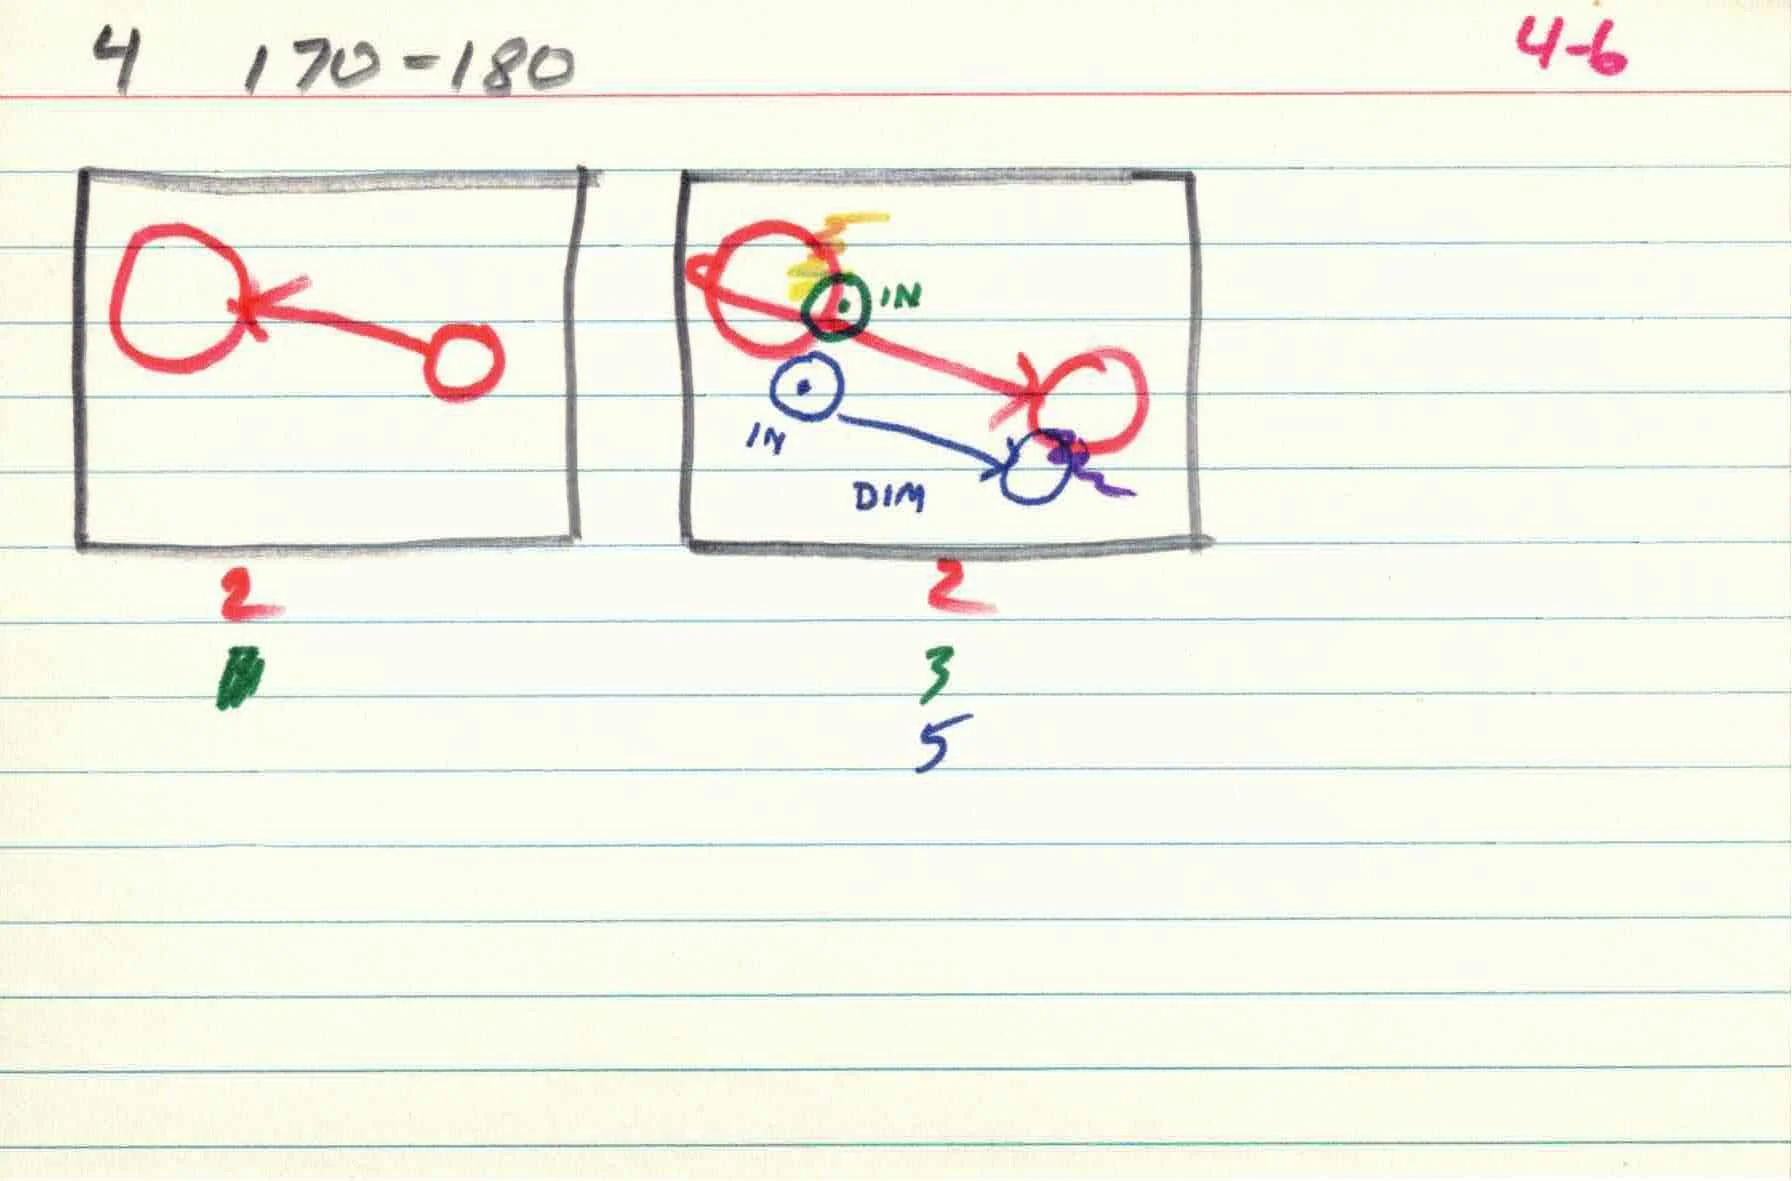 4 170-180 4-6
IN
IN
DIM
2 2
3
5